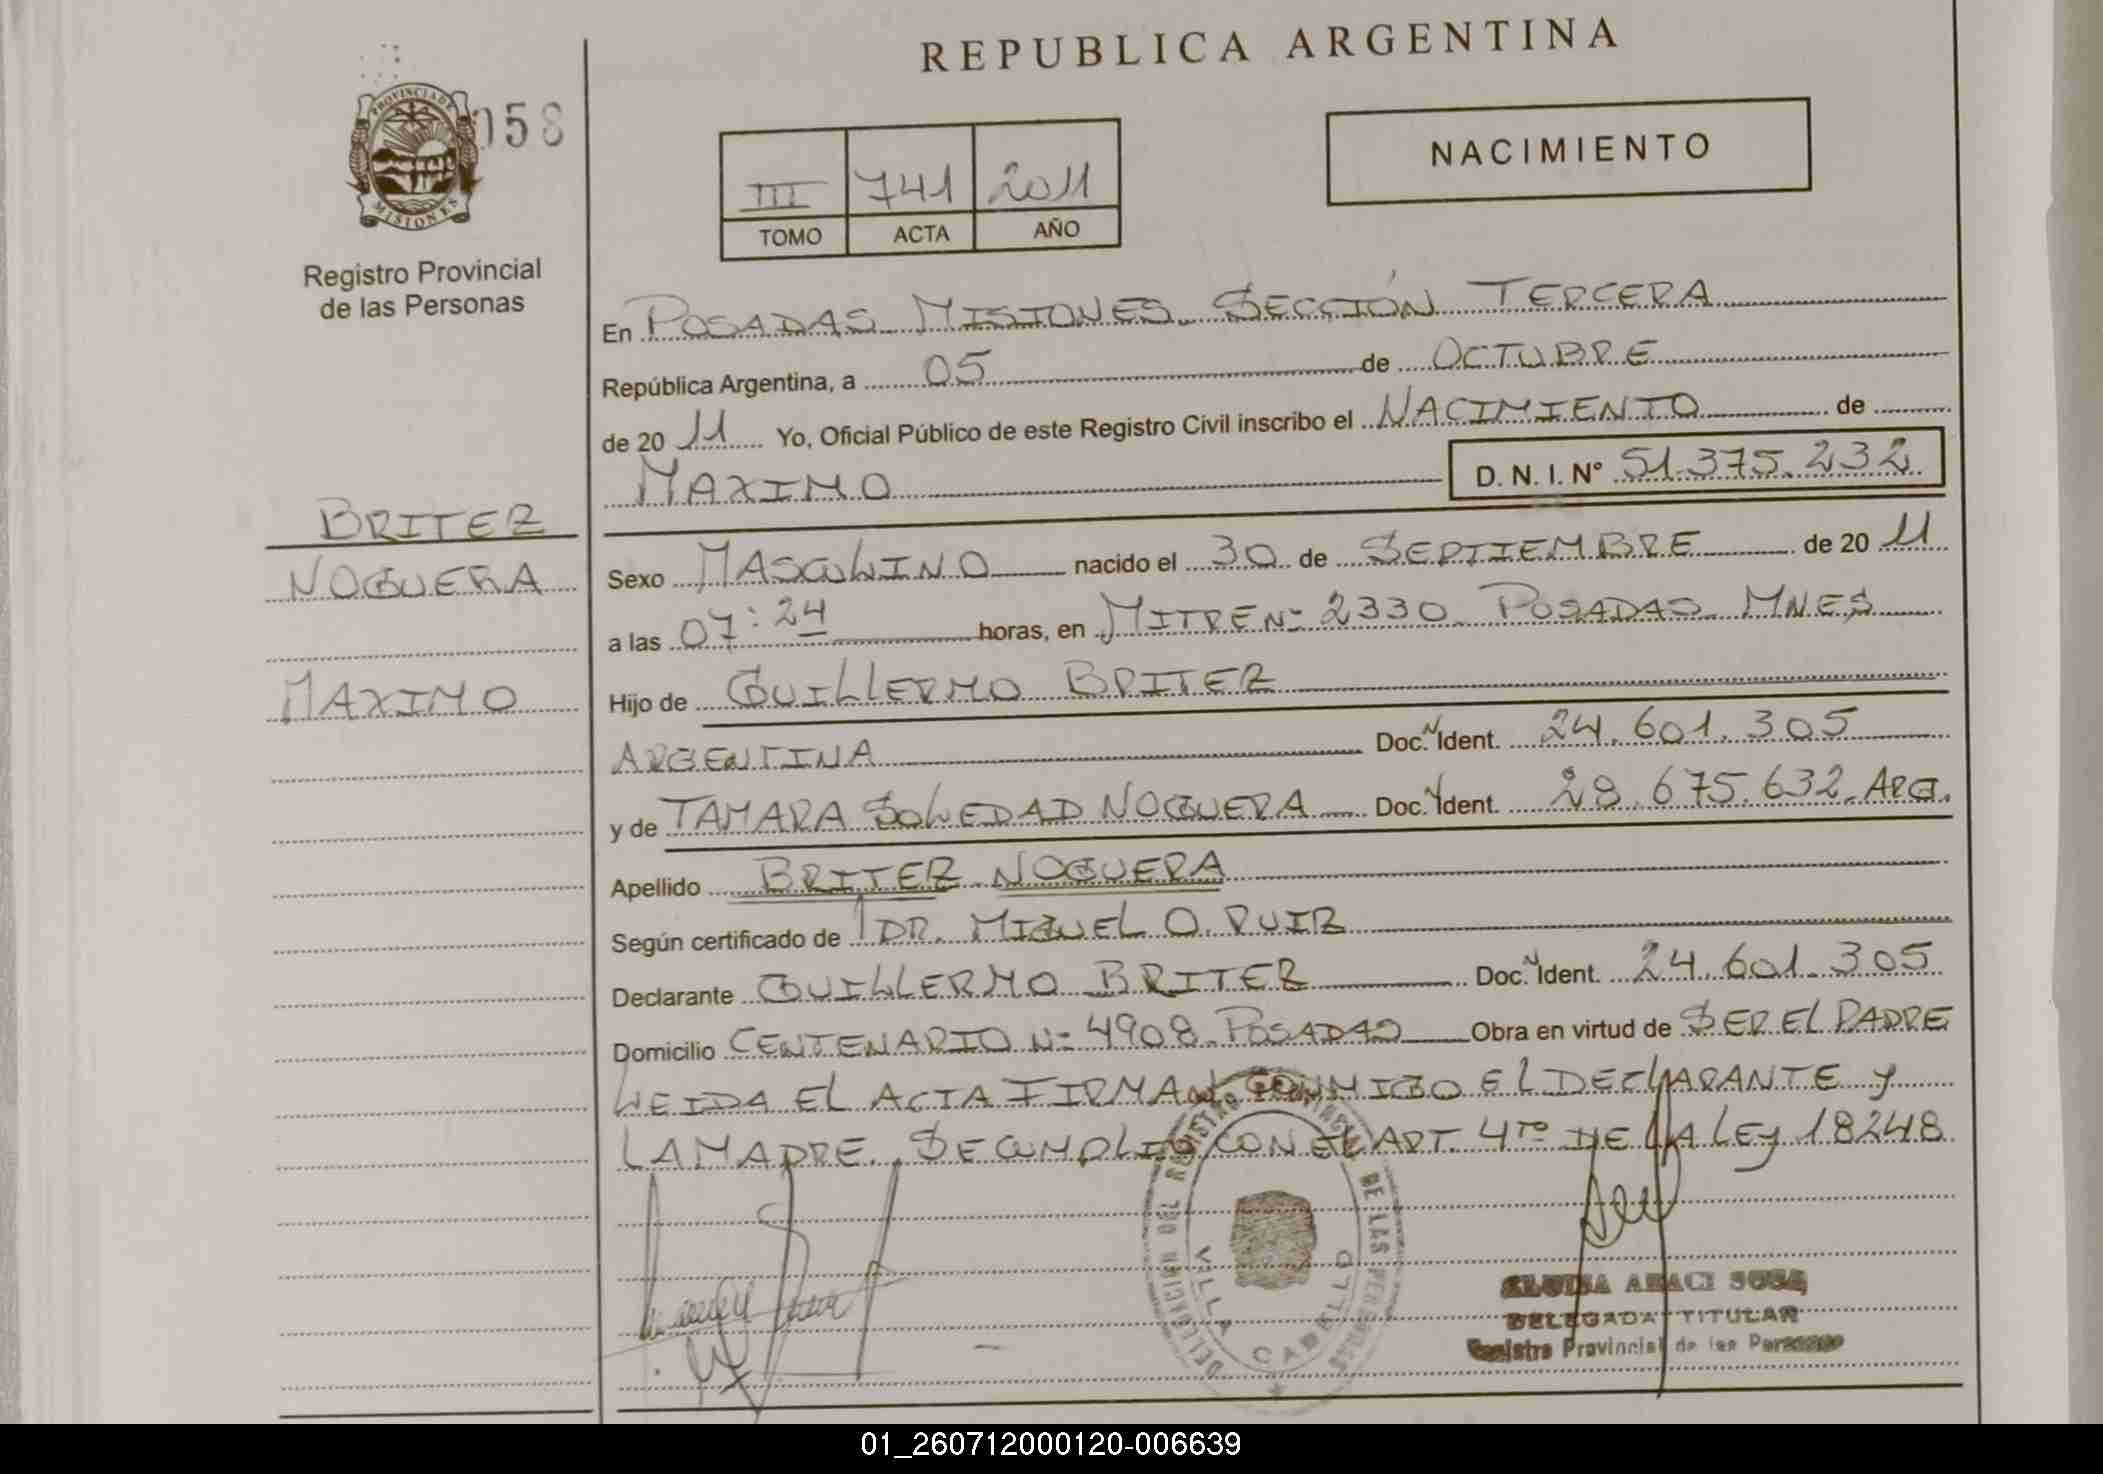 REPUBLICA ARGENTINA
PROVINCIA DE
MISIONES
058
Registro Provincial
de las Personas
NACIMIENTO
III 741 2011
TOMO ACTA AÑO
En POSADAS MISIONES. SECCIÓN TERCERA
República Argentina, a 05 de OCTUBRE
de 20 11 Yo, Oficial Público de este Registro Civil inscribo el NACIMIENTO de
MAXIMO D. N. I. N° 51.375.232
BRITEZ
NOGUERA
MAXIMO
Sexo MASCULINO nacido el 30 de SEPTIEMBRE de 20 11
a las 07:24 horas, en MITRE Nº 2330 POSADAS MNES
Hijo de GUILLERMO BRITEZ
ARGENTINA Doc. Ident. 24.601.305
y de TAMARA SOLEDAD NOGUERA Doc. Ident. 28.675.632. ARG.
Apellido BRITEZ NOGUERA
Según certificado de DR. MIGUEL O. RUIZ
Declarante GUILLERMO BRITEZ Doc. Ident. 24.601.305
Domicilio CENTENARIO Nº 4908 POSADAS Obra en virtud de SER EL PADRE
LEIDA EL ACTA FIRMAN CONMIGO EL DECLARANTE y
LA MADRE. SE CUMPLIO CON EL ART. 4TO DE LA LEY 18248
DELEGACION DEL REGISTRO PROVINCIAL DE LAS PERSONAS
VILLA CABELLO
ARACI SOSA
DELEGADA TITULAR
Registro Provincial de las Personas
01_260712000120-006639